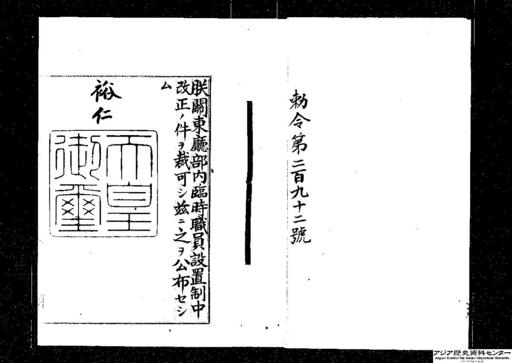 勅令第二百九十二號
朕關東廳部内臨時職員設置制中
改正ノ件ヲ裁可シ茲ニ之ヲ公布セシ
ム
裕仁
天皇
御璽
アジア歴史資料センター
Japan Center for Asian Historical Records